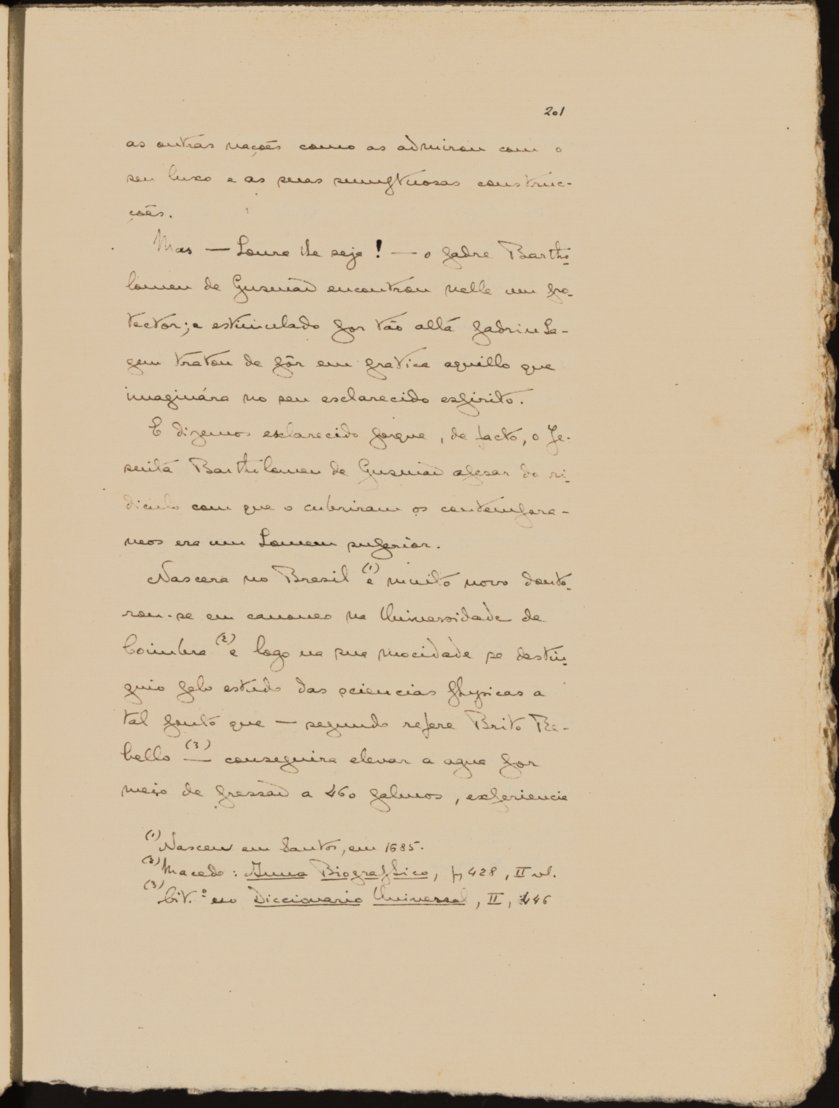 201
as outras nações como as admirou com o
seu luxo e as suas sumptuosas construc-
ções.
Mas — Louro lhe seja! — o padre Bartho-
lomeu de Gusmão encontrou nelle um pro-
tector; e estimulado por tão alta padrinha-
gem tratou de pôr em pratica aquillo que
imaginára no seu esclarecido espirito.
E dizemos esclarecido porque, de facto, o Je-
suita Bartholomeu de Gusmão apesar do ri-
diculo com que o cubriram os contempora-
neos era um homem superior.
Nascera no Brasil (1) e muito novo douto-
rou-se em canones na Universidade de
Coimbra (2) e logo na sua mocidade se destin-
guio pelo estudo das sciencias physicas a
tal ponto que — segundo refere Brito Re-
bello (3) — conseguira elevar a agua por
meio de pressão a 460 palmos, experiencia
(1) Nasceu em Santos, em 1685.
(2) Macedo: Anno Biographico, p. 428, II vl.
(3) Cit.º no Diccionario Universal, II, 446